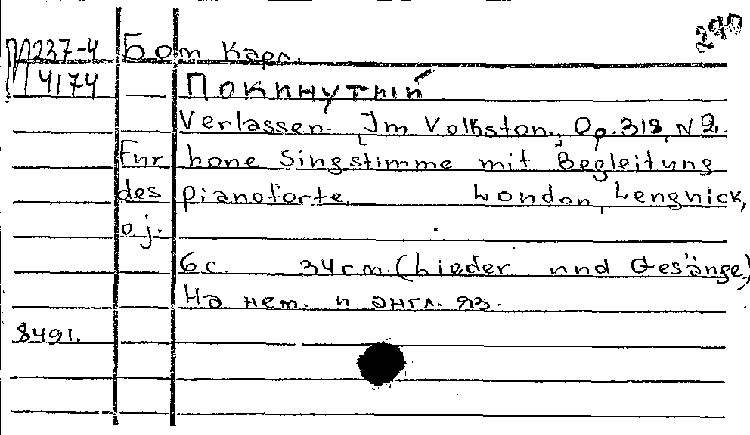 290
М237-4 Бом Карл.
4174 Покинутый
Verlassen. Im Volkston. Op. 318, N 2.
Fur hohe Singstimme mit Begleitung
des pianoforte. London, Lengnick,
o.j.
6 с. 34 cm. (Lieder und Gesänge)
На нем. и англ. яз.
8491.